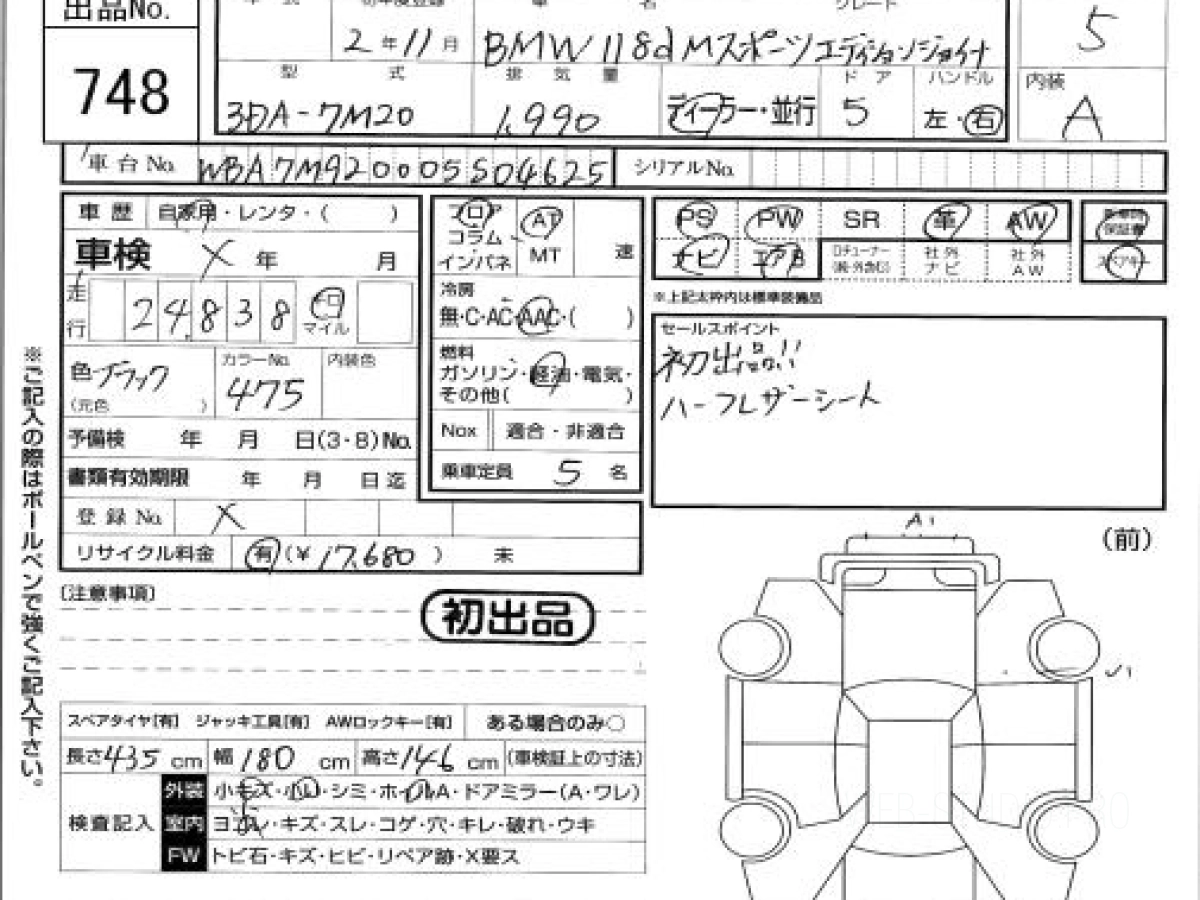 出品No.
748
年 式
初年度登録
車 名
グレード
2年11月
BMW 118d Mスポーツ エディションジョイ+
5
型 式
排 気 量
ドア
ハンドル
内装
3DA-7M20
1.990
ディーラー・並行
5
左・右
A
車台No.
WBA7M920005S04625
シリアルNo.
車歴
自家用・レンタ・( )
フロア
コラム
インパネ
AT
MT
速
PS
PW
SR
革
AW
保証書
車検
X年 月
ナビ
エアB
社外
ナビ
社外
AW
スペアキー
走行
24,838
マイル
冷房
無・C・AC・AAC・( )
※上記太枠内は標準装備品
セールスポイント
初出品!!
ハーフレザーシート
色 ブラック
(元色 )
カラーNo.
475
内装色
燃料
ガソリン・軽油・電気・
その他( )
予備検 年 月 日(3・8)No.
Nox
適合・非適合
書類有効期限 年 月 日迄
乗車定員 5 名
登録No. X
リサイクル料金 有(¥17,680) 未
A1
(前)
[注意事項]
初出品
スペアタイヤ[有] ジャッキ工具[有] AWロックキー[有]
ある場合のみ○
長さ435cm 幅180cm 高さ146cm (車検証上の寸法)
検査記入
外装 小キズ・小凹・シミ・ホイルA・ドアミラー(A・ワレ)
室内 ヨゴレ・キズ・スレ・コゲ・穴・キレ・破れ・ウキ
FW トビ石・キズ・ヒビ・リペア跡・X要ス
※ご記入の際はボールペンで強くご記入下さい。